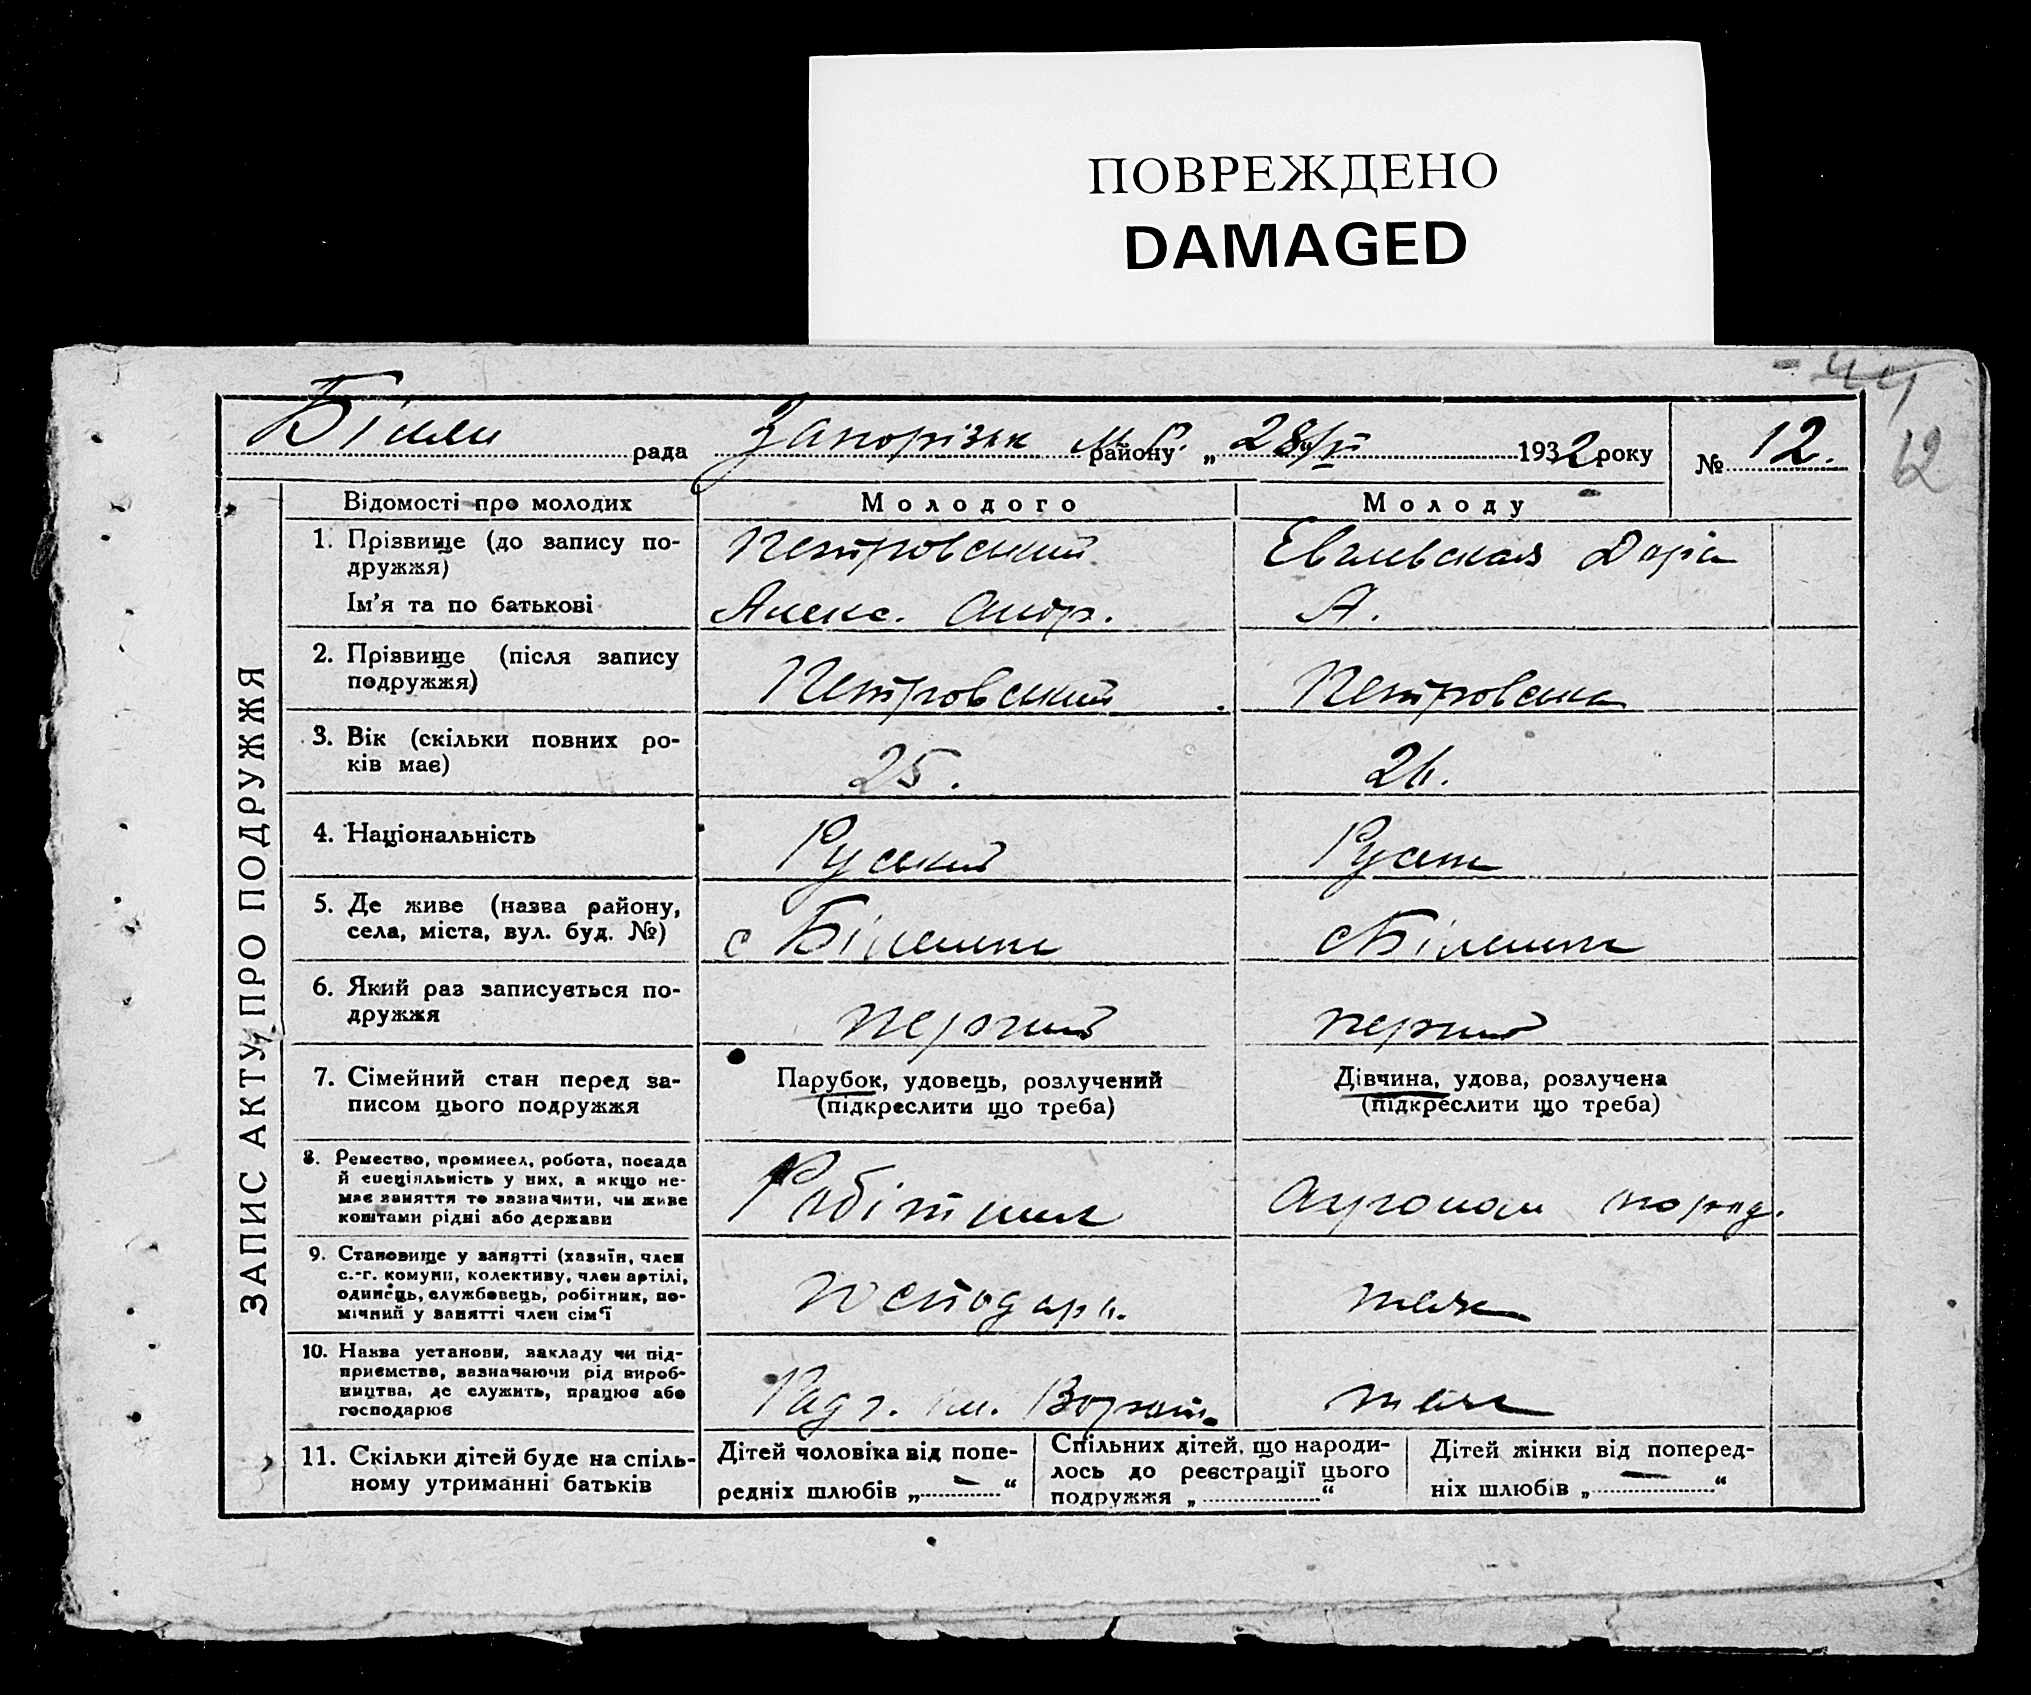 ПОВРЕЖДЕНО
DAMAGED
44
12
рада Запорізьк району „ 28/VI 1932 року № 12.
ЗАПИС АКТУ ПРО ПОДРУЖЖЯ
Відомості про молодих Молодого Молоду
1. Прізвище (до запису по-
дружжя)
Петровський Дарія
Ім'я та по батькові Алекс. Андр. А.
2. Прізвище (після запису
подружжя)
Петровський Петровська
3. Вік (скільки повних ро-
ків має)
25. 26.
4. Національність Руський
5. Де живе (назва району,
села, міста, вул. буд. №)
с с
6. Який раз записується по-
дружжя
перший перший
7. Сімейний стан перед за-
писом цього подружжя
Парубок, удовець, розлучений
(підкреслити що треба)
Дівчина, удова, розлучена
(підкреслити що треба)
8. Ремество, промисел, робота, посада
й спеціяльність у них, а якщо не-
має заняття то зазначити, чи живе
коштами рідні або держави
Робітник Агроном
9. Становище у занятті (хазяїн, член
с.-г. комуни, колективу, член артілі,
одинець, службовець, робітник, по-
мічний у занятті член сім'ї
10. Назва установи, закладу чи під-
приємства, зазначаючи рід вироб-
ництва, де служить, працює або
господарює
Радг. ім.
11. Скільки дітей буде на спіль-
ному утриманні батьків
Дітей чоловіка від попе-
редніх шлюбів „ — “
Спільних дітей, що народи-
лось до реєстрації цього
подружжя „ “
Дітей жінки від поперед-
ніх шлюбів „ — “